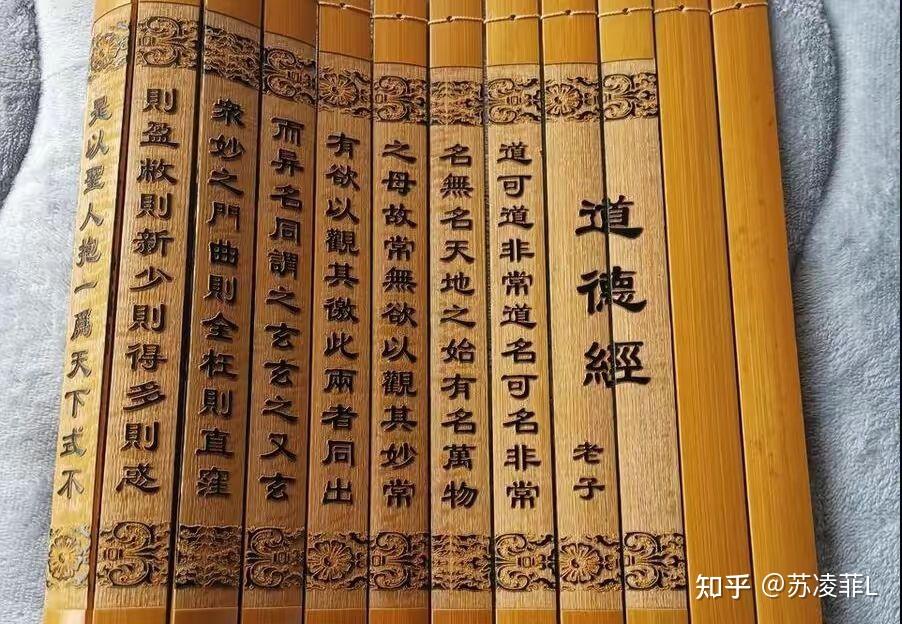 道德經
老子
道可道非常道名可名非常
名無名天地之始有名萬物
之母故常無欲以觀其妙常
有欲以觀其徼此兩者同出
而异名同謂之玄玄之又玄
衆妙之門曲則全枉則直窪
則盈敝則新少則得多則惑
是以聖人抱一爲天下式不
知乎 @苏凌菲L